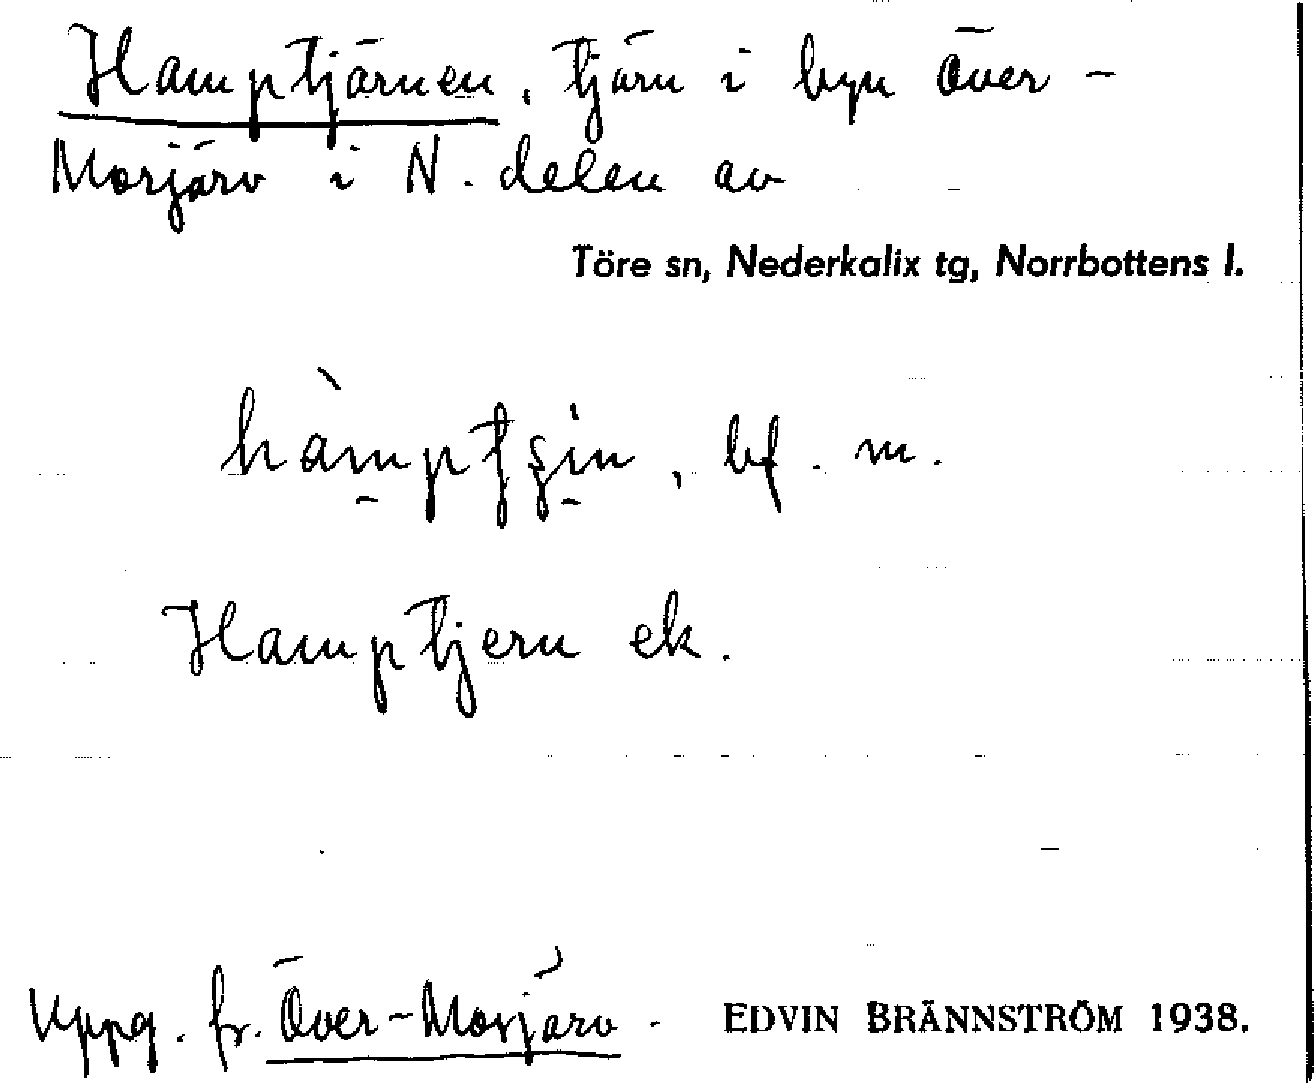 Hamptjärnen, tjärn i byn Över-
Morjärv i N. delen av
Töre sn, Nederkalix tg, Norrbottens l.
, bf. m.
Hamptjern ek.
Uppg. fr. Över-Morjärv - EDVIN BRÄNNSTRÖM 1938.